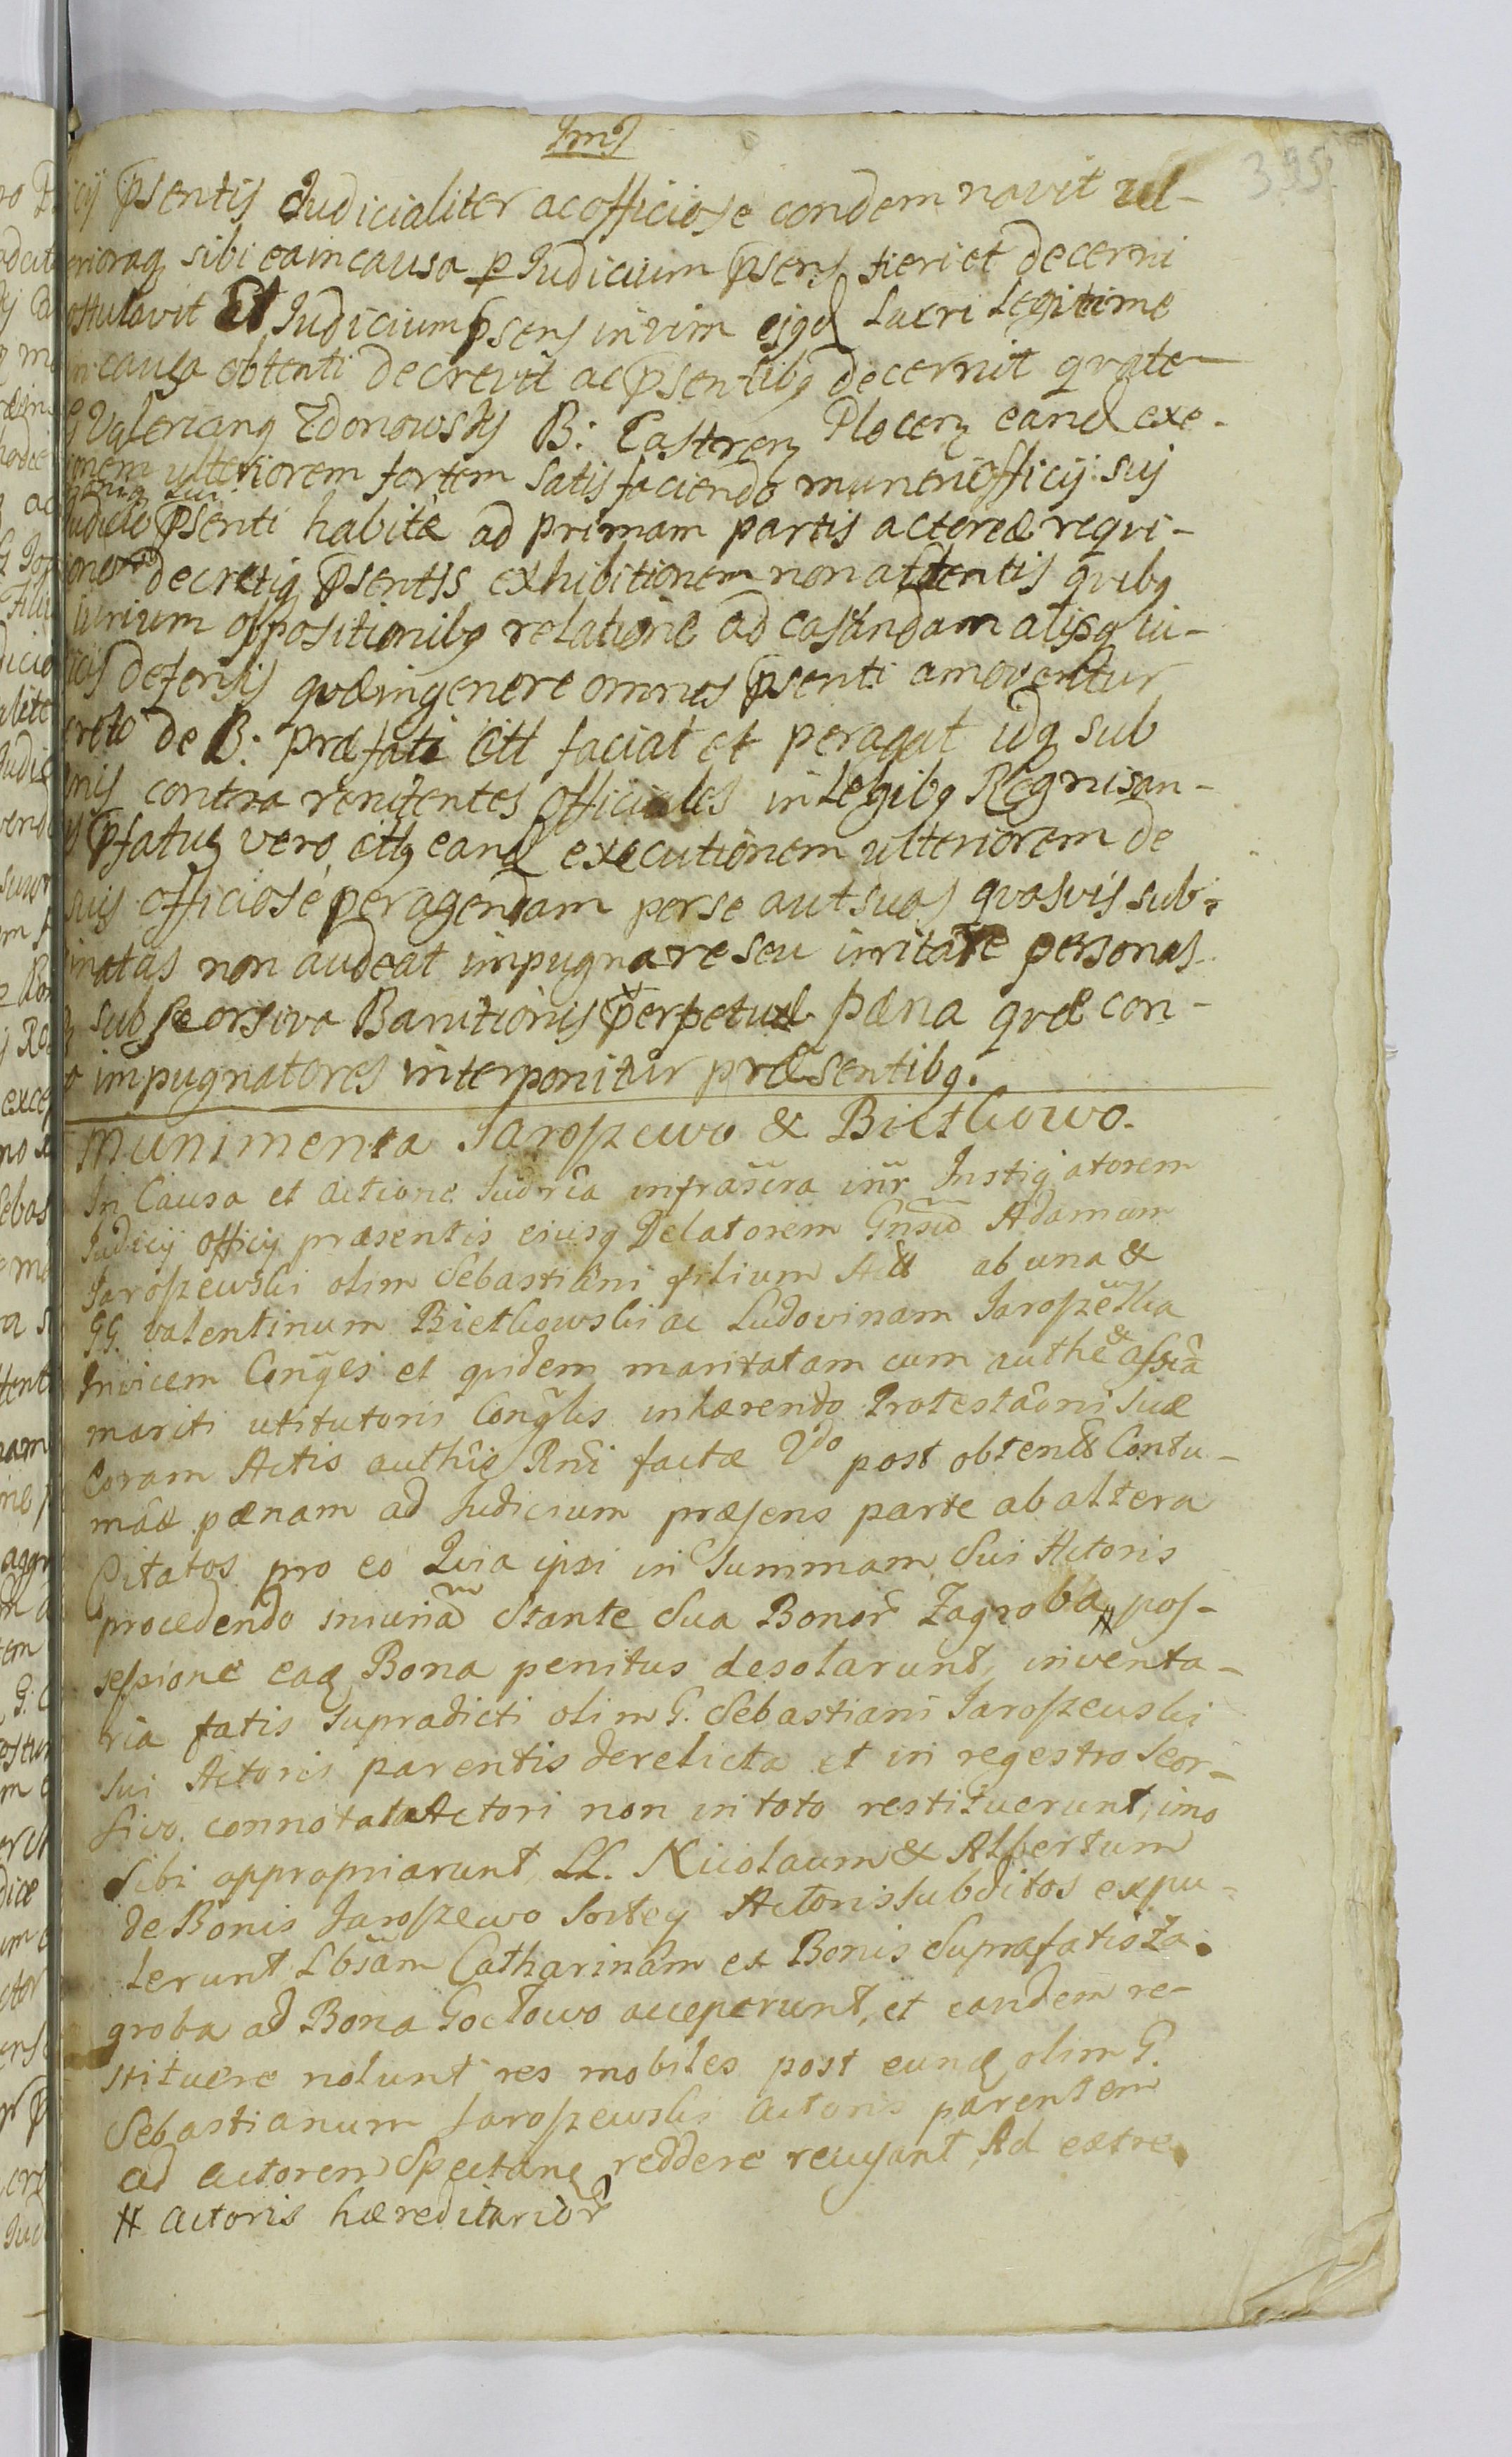 395
icij psentis Judicialiter ac officiose condemnavit ul-
erioraq sibi ea in causa p Judicium psens fieri et decerni
ostulavit Et Judicium psens in vim ejqd Lucri Legitime
in causa obtenti decrevit ac psentibq decernit qvate-
Valerianq Zdonowsky B: Castren Plocen eand exe-
onem ulteriorem fortem satisfaciendo muneri officij suj
udicio psenti habitæ ad primam partis actoreæ reqvi-
one decretiq psentis exhibitionem non attentis qvibq
iurium oppositionibq relatione ad casandam alijsq iu-
icis defensis qvæ in genere omnes psenti amoventur
creto de B: præfati Citt faciat et peragat idq sub
nis contra renitentes officiales in Legibq Regni san-
psatuq vero cittq eand executionem ulteriorem de
suis officiose peragendam per se aut suas qvasvis sub-
inatas non audeat impugnare seu irritare personas
sub seorsiva Banitionis perpetuæ pæna qvæ con-
impugnatores interponitur præsentibq.
Munimenta Jaroszewo & Bietkowo.
In Causa et actione Judria infrascra intr Instigatorem
Judicij officij præsentis eiusq Delatorem Gnsum Adamum
Jaroszewski olim Sebastiani filium Act ab una &
GG. Valentinum Bietkowski ac Ludovinam Jaroszewska
Invicem Conges et qvidem maritatam cum authe & assia
mariti uti tutoris Conglis inhærendo Protestaoni suæ
Coram Actis authis Rni factæ Vdo post obtent Contu-
mac pænam ad Judicium præsens parte ab altera
Citatos pro eo Quia ipsi in Summam Sui Actoris
procedendo iniuriam Stante Sua Bonor Zagroba # pos-
sessione eaq Bona penitus desolarunt, inventa-
ria fatis supradicti olim G. Sebastiani Jaroszewski
sui Actoris parentis derelicta et in regestro seor-
sivo connotata Actori non in toto restituerunt, imo
Sibi appropriarunt LL. Nicolaum & Albertum
de Bonis Jaroszewo Sortey Actoris subditos expu-
lerunt Lbsam Catharinam ex Bonis Suprafatis Za-
groba ad Bona Goctowo acceperunt, et eandem re-
stituere nolunt res mobiles post eund olim G.
Sebastianum Jaroszewski actoris parentem
ad actorem Spectanq reddere recusant, Ad extre
# actoris hæreditarior